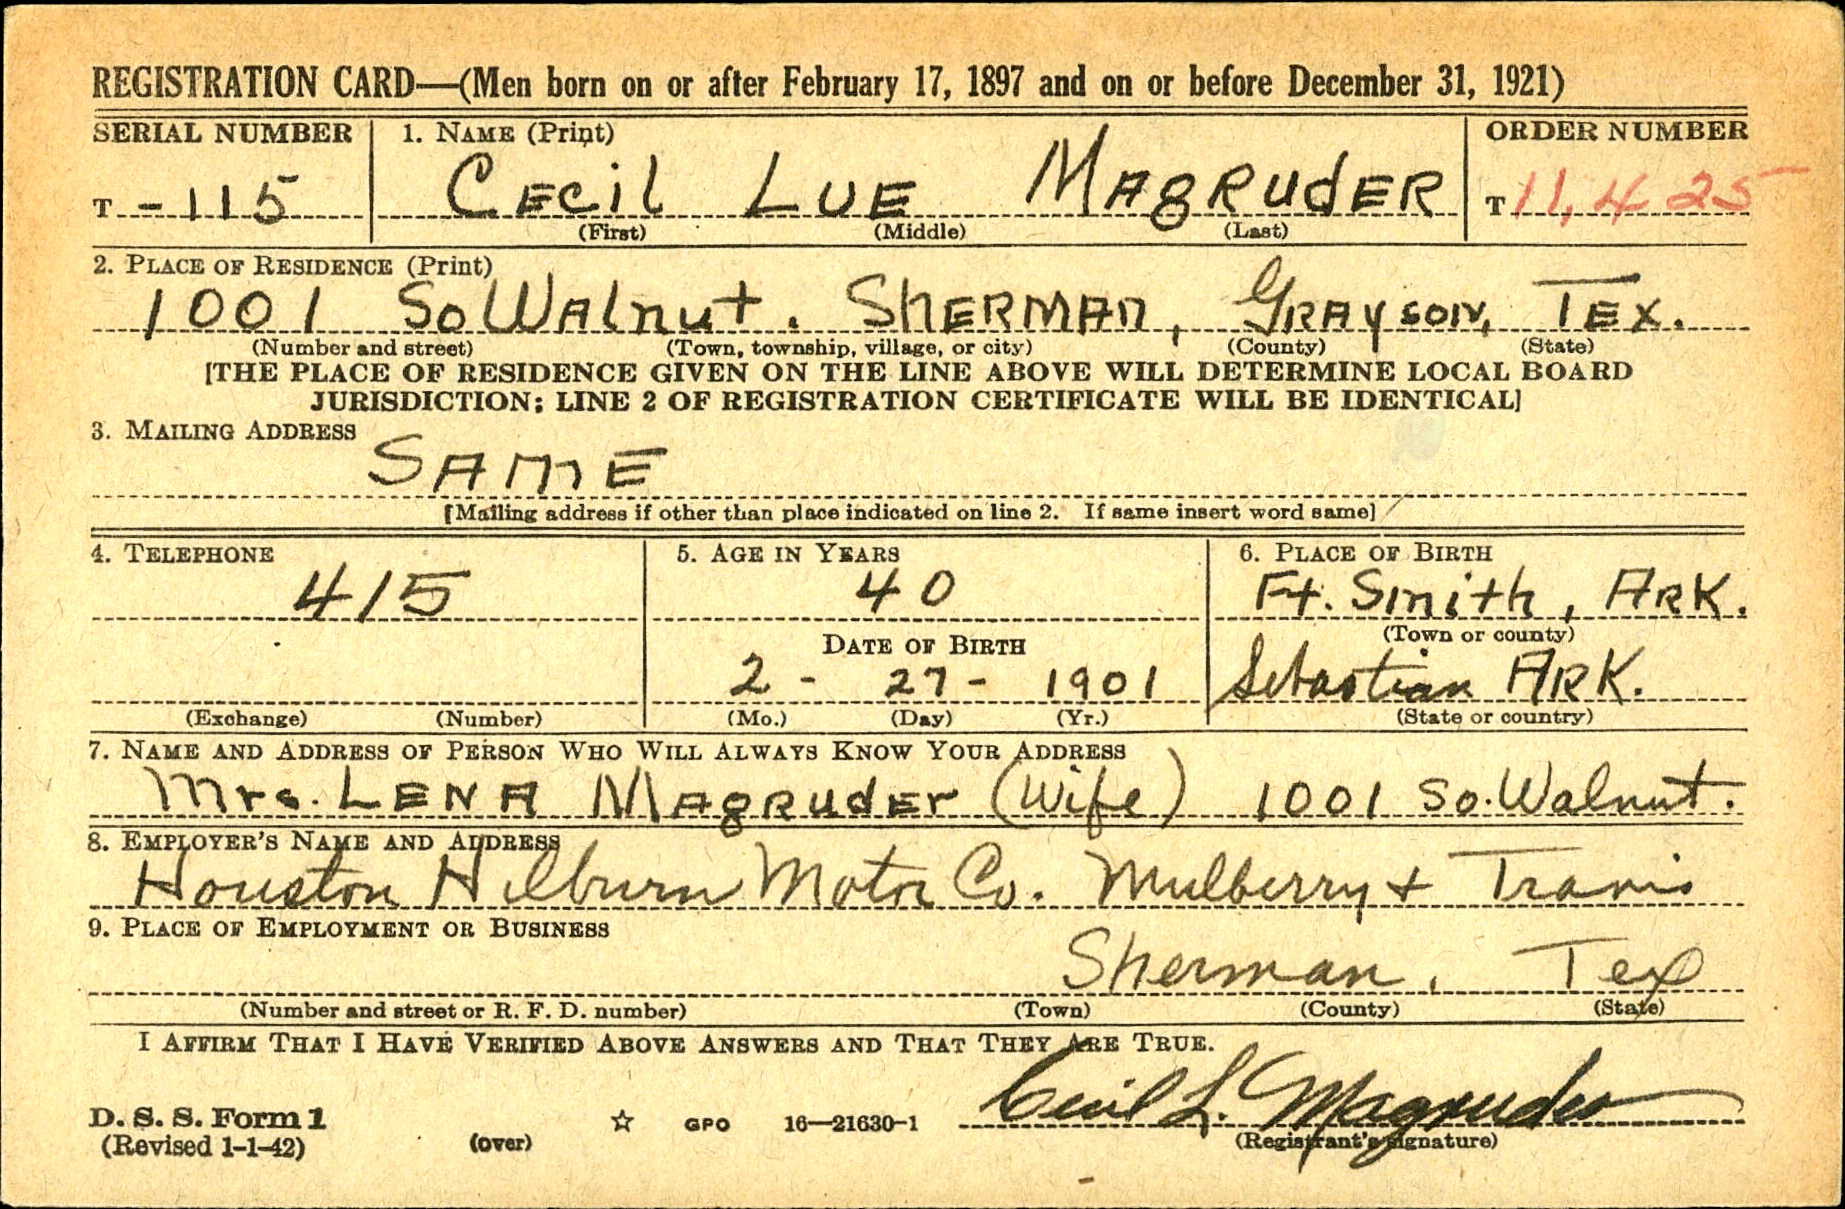 REGISTRATION CARD—(Men born on or after February 17, 1897 and on or before December 31, 1921)
SERIAL NUMBER 1. NAME (Print) ORDER NUMBER
T -115 CECil LUE MAgRUdER T 11,425
(First) (Middle) (Last)
2. PLACE OF RESIDENCE (Print)
1001 So WAlnut. SHERMAn, GRAYSON, TEX.
(Number and street) (Town, township, village, or city) (County) (State)
[THE PLACE OF RESIDENCE GIVEN ON THE LINE ABOVE WILL DETERMINE LOCAL BOARD
JURISDICTION; LINE 2 OF REGISTRATION CERTIFICATE WILL BE IDENTICAL]
3. MAILING ADDRESS
SAME
[Mailing address if other than place indicated on line 2. If same insert word same]
4. TELEPHONE 5. AGE IN YEARS 6. PLACE OF BIRTH
415 40 Ft. Smith, ARK.
(Town or county)
DATE OF BIRTH
2 - 27 - 1901 Sebastian ARK.
(Exchange) (Number) (Mo.) (Day) (Yr.) (State or country)
7. NAME AND ADDRESS OF PERSON WHO WILL ALWAYS KNOW YOUR ADDRESS
Mrs. LENA MAgRUdEr (Wife) 1001 So. Walnut.
8. EMPLOYER'S NAME AND ADDRESS
Houston Hilburn Motor Co. Mulberry + Travis
9. PLACE OF EMPLOYMENT OR BUSINESS
Sherman, Tex
(Number and street or R. F. D. number) (Town) (County) (State)
I AFFIRM THAT I HAVE VERIFIED ABOVE ANSWERS AND THAT THEY ARE TRUE.
Cecil L. Magruder
D. S. S. Form 1 ☆ GPO 16—21630-1
(Revised 1-1-42) (over) (Registrant's signature)